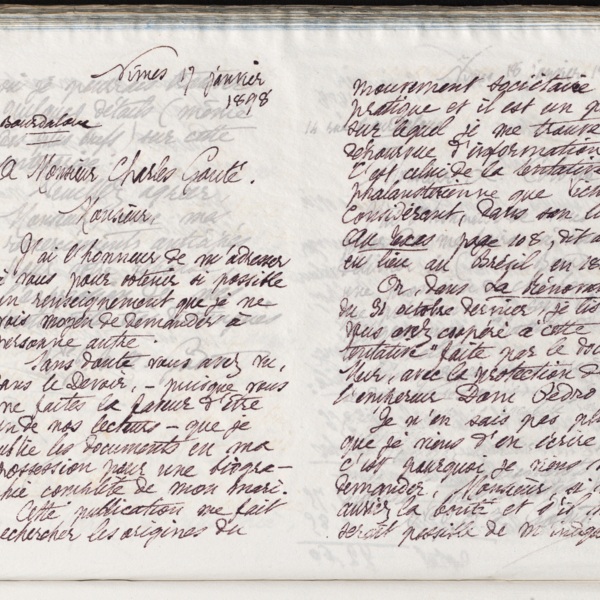 Nimes 17 janvier
1898
Bourdaloue
A Monsieur Charles Gouté.
Monsieur
J'ai l'honneur de m'adresser
à vous pour obtenir si possible
un renseignement que je ne
vois moyen de demander à
personne autre.
Sans doute vous avez vu,
dans le Devoir, – puisque vous
me faites la faveur d'être
un de nos lecteurs – que je
publie les documents en ma
possession pour une biogra-
phie complète de mon mari.
Cette publication me fait
rechercher les origines du
mouvement sociétaire
pratique et il est un
sur lequel je me trouve
dépourvue d'information
C'est celui de la tentative
phalanstérienne que
Considérant, dans son
Au Texas page 108, dit
eu lieu au Brésil en
Or, dans La Rénov
du 31 octobre dernier, je lis
vous avez coopéré à cette
tentative "faite par le
Mure, avec la protection de
l'empereur Dom Pedro
Je n'en sais pas plus
que je viens d'en écrire
c'est pourquoi je viens
demander, Monsieur, si
auriez la bonté et s'il
serait possible de m'indiqu